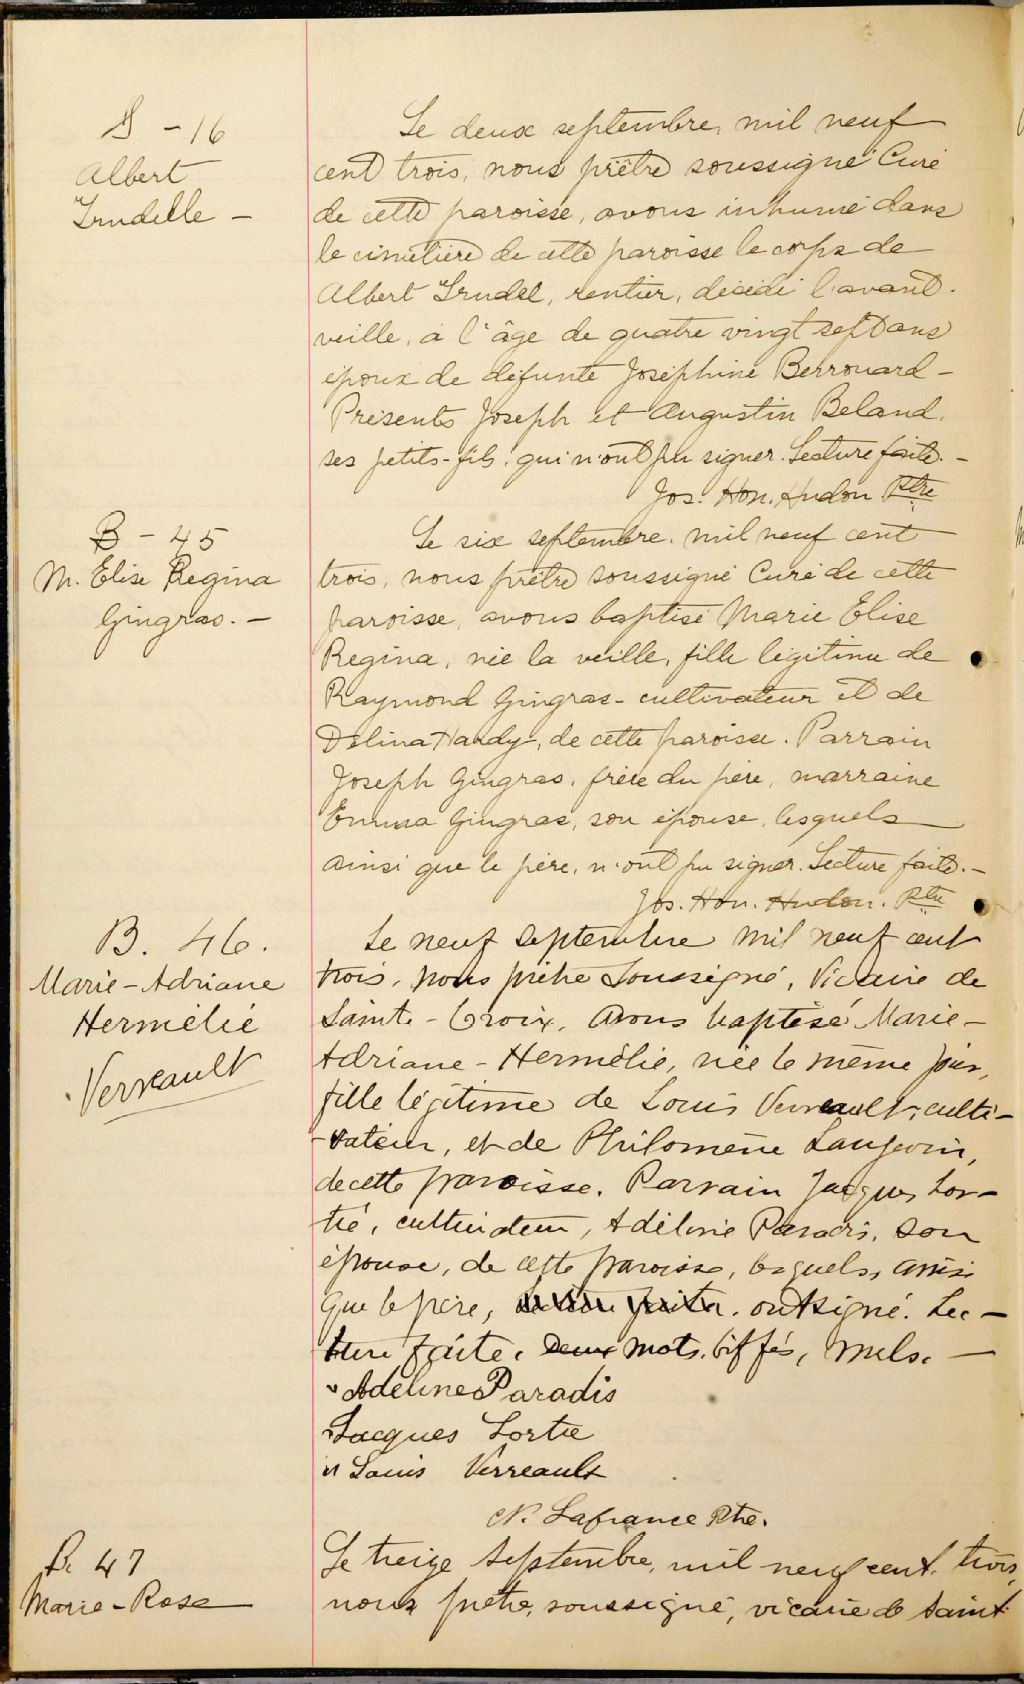 S - 16
Albert
Trudelle -
Le deux septembre, mil neuf
cent trois, nous prêtre soussigné Curé
de cette paroisse, avons inhumé dans
le cimetière de cette paroisse le corps de
Albert Trudel, rentier, décédé l'avant-
veille, à l'âge de quatre vingt sept ans
époux de défunte Joséphine Berrouard -
Présents Joseph et Augustin Beland.
ses petits-fils, qui n'ont pu signer. Lecture faite. -
Jos. Hon. Hudon Ptre
B - 45
M. Elise Regina
Gingras. -
Le six septembre, mil neuf cent
trois, nous prêtre soussigné Curé de cette
paroisse, avons baptisé Marie Elise
Regina, née la veille, fille légitime de
Raymond Gingras - cultivateur et de
Délina Hardy, de cette paroisse. Parrain
Joseph Gingras, frère du père, marraine
Emma Gingras, son épouse, lesquels
ainsi que le père, n'ont pu signer. Lecture faite. -
Jos. Hon. Hudon. Ptre
B. 46.
Marie-Adriane
Hermélie
Verreault
Le neuf septembre mil neuf cent
trois, nous prêtre soussigné, Vicaire de
Sainte-Croix, avons baptisé Marie-
Adriane-Hermélie, née le même jour,
fille légitime de Louis Verreault, culti-
-vateur, et de Philomène Langevin,
de cette paroisse. Parrain Jacques Lor-
tie, cultivateur, Adéline Paradis, son
épouse, de cette paroisse, lesquels, ainsi
que le père, Lecture faite. ont signé. Lec-
ture faite. Deux mots biffés, nuls. -
Adeline Paradis
Jacques Lortie
Louis Verreault
N. Lafrance Ptre.
B. 47
Marie-Rose
Le treize septembre, mil neuf cent trois,
nous prêtre, soussigné, vicaire de Saint